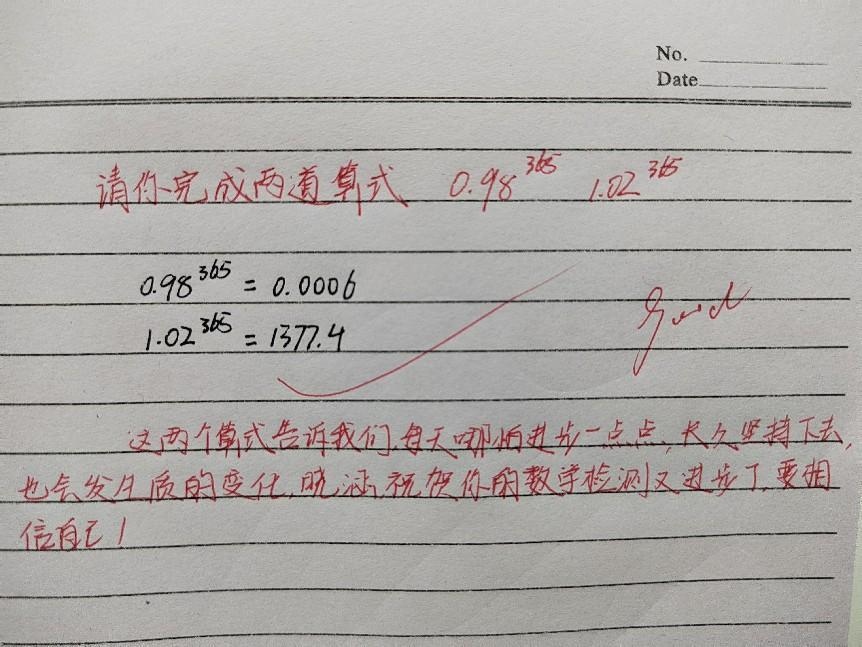 No.
Date
请你完成两道算式 0.98³⁶⁵ 1.02³⁶⁵
0.98³⁶⁵ = 0.0006
1.02³⁶⁵ = 1377.4
Good
这两个算式告诉我们,每天哪怕进步一点点,长久坚持下去,
也会发生质的变化,晓涵,祝贺你的数学检测又进步了,要相
信自己!